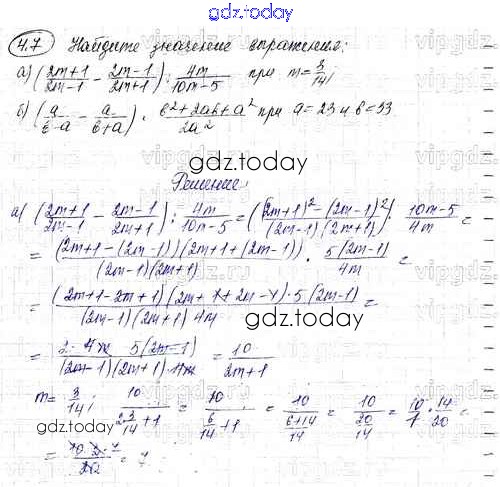 gdz.today
4.7 Найдите значение выражения:
а) ( 2m+1 / 2m-1 - 2m-1 / 2m+1 ) : 4m / 10m-5 при m = 3/14;
б) ( a / в-a - a / в+a ) · в²+2ав+a² / 2a² при a=23 и в=33
gdz.today
Решение
а) ( 2m+1 / 2m-1 - 2m-1 / 2m+1 ) : 4m / 10m-5 = ( (2m+1)² - (2m-1)² / (2m-1)(2m+1) ) · 10m-5 / 4m =
= (2m+1-(2m-1))(2m+1+(2m-1)) / (2m-1)(2m+1) · 5(2m-1) / 4m =
= (2m+1-2m+1)(2m+1+2m-1)·5(2m-1) / (2m-1)(2m+1) 4m =
gdz.today
= 2·4m·5(2m-1) / (2m-1)(2m+1)·4m = 10 / 2m+1
m = 3/14; 10 / 2·3/14+1 = 10 / 6/14+1 = 10 / 6+14/14 = 10 / 20/14 = 10/1 · 14/20 =
gdz.today
= 10·2·7 / 2·10 = 7